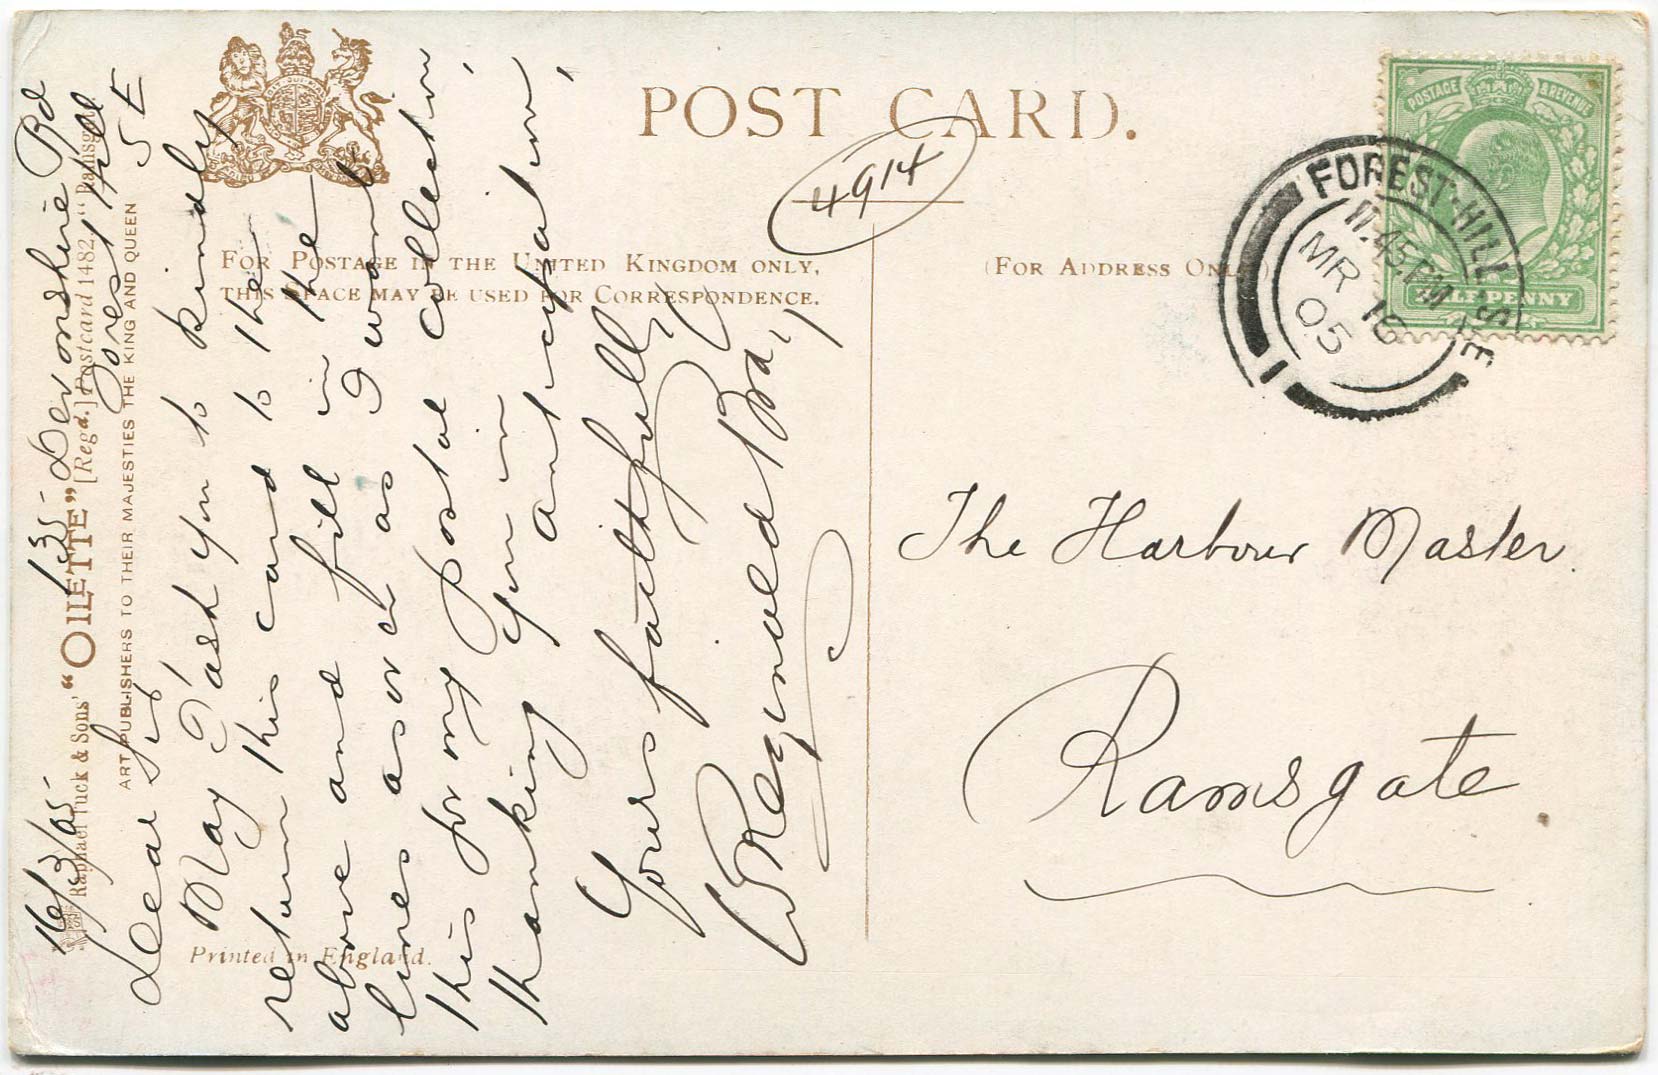 POST CARD.
4914
FOR POSTAGE IN THE UNITED KINGDOM ONLY,
THIS SPACE MAY BE USED FOR CORRESPONDENCE.
(FOR ADDRESS ONLY)
POSTAGE & REVENUE
HALF PENNY
FOREST-HILL S.E
11.45 PM
MR 16
05
1
The Harbour Master
Ramsgate
Raphael Tuck & Sons' "OILETTE" [Regd.] Postcard 1482, "Ramsgate"
ART PUBLISHERS TO THEIR MAJESTIES THE KING AND QUEEN
Printed in England.
16/3/05- 135- Devonshire Rd
Forest Hill
S E
Dear Sir
May I ask you to kindly
return this card to the
above and fill in the
lines as I want
this for my postal collection
thanking you in anticipation,
Yours faithfully
W Reginald Bray